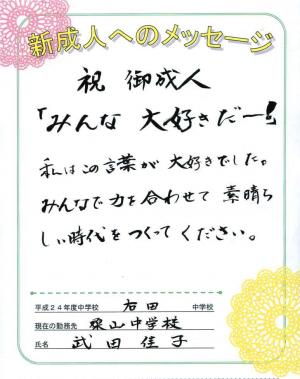 新成人へのメッセージ
祝 御成人
「みんな 大好きだー!」
私はこの言葉が 大好きでした。
みんなで力を合わせて 素晴ら
しい時代をつくってください。
平成24年度中学校 右田 中学校
現在の勤務先 中学校
氏名 武田 佳子